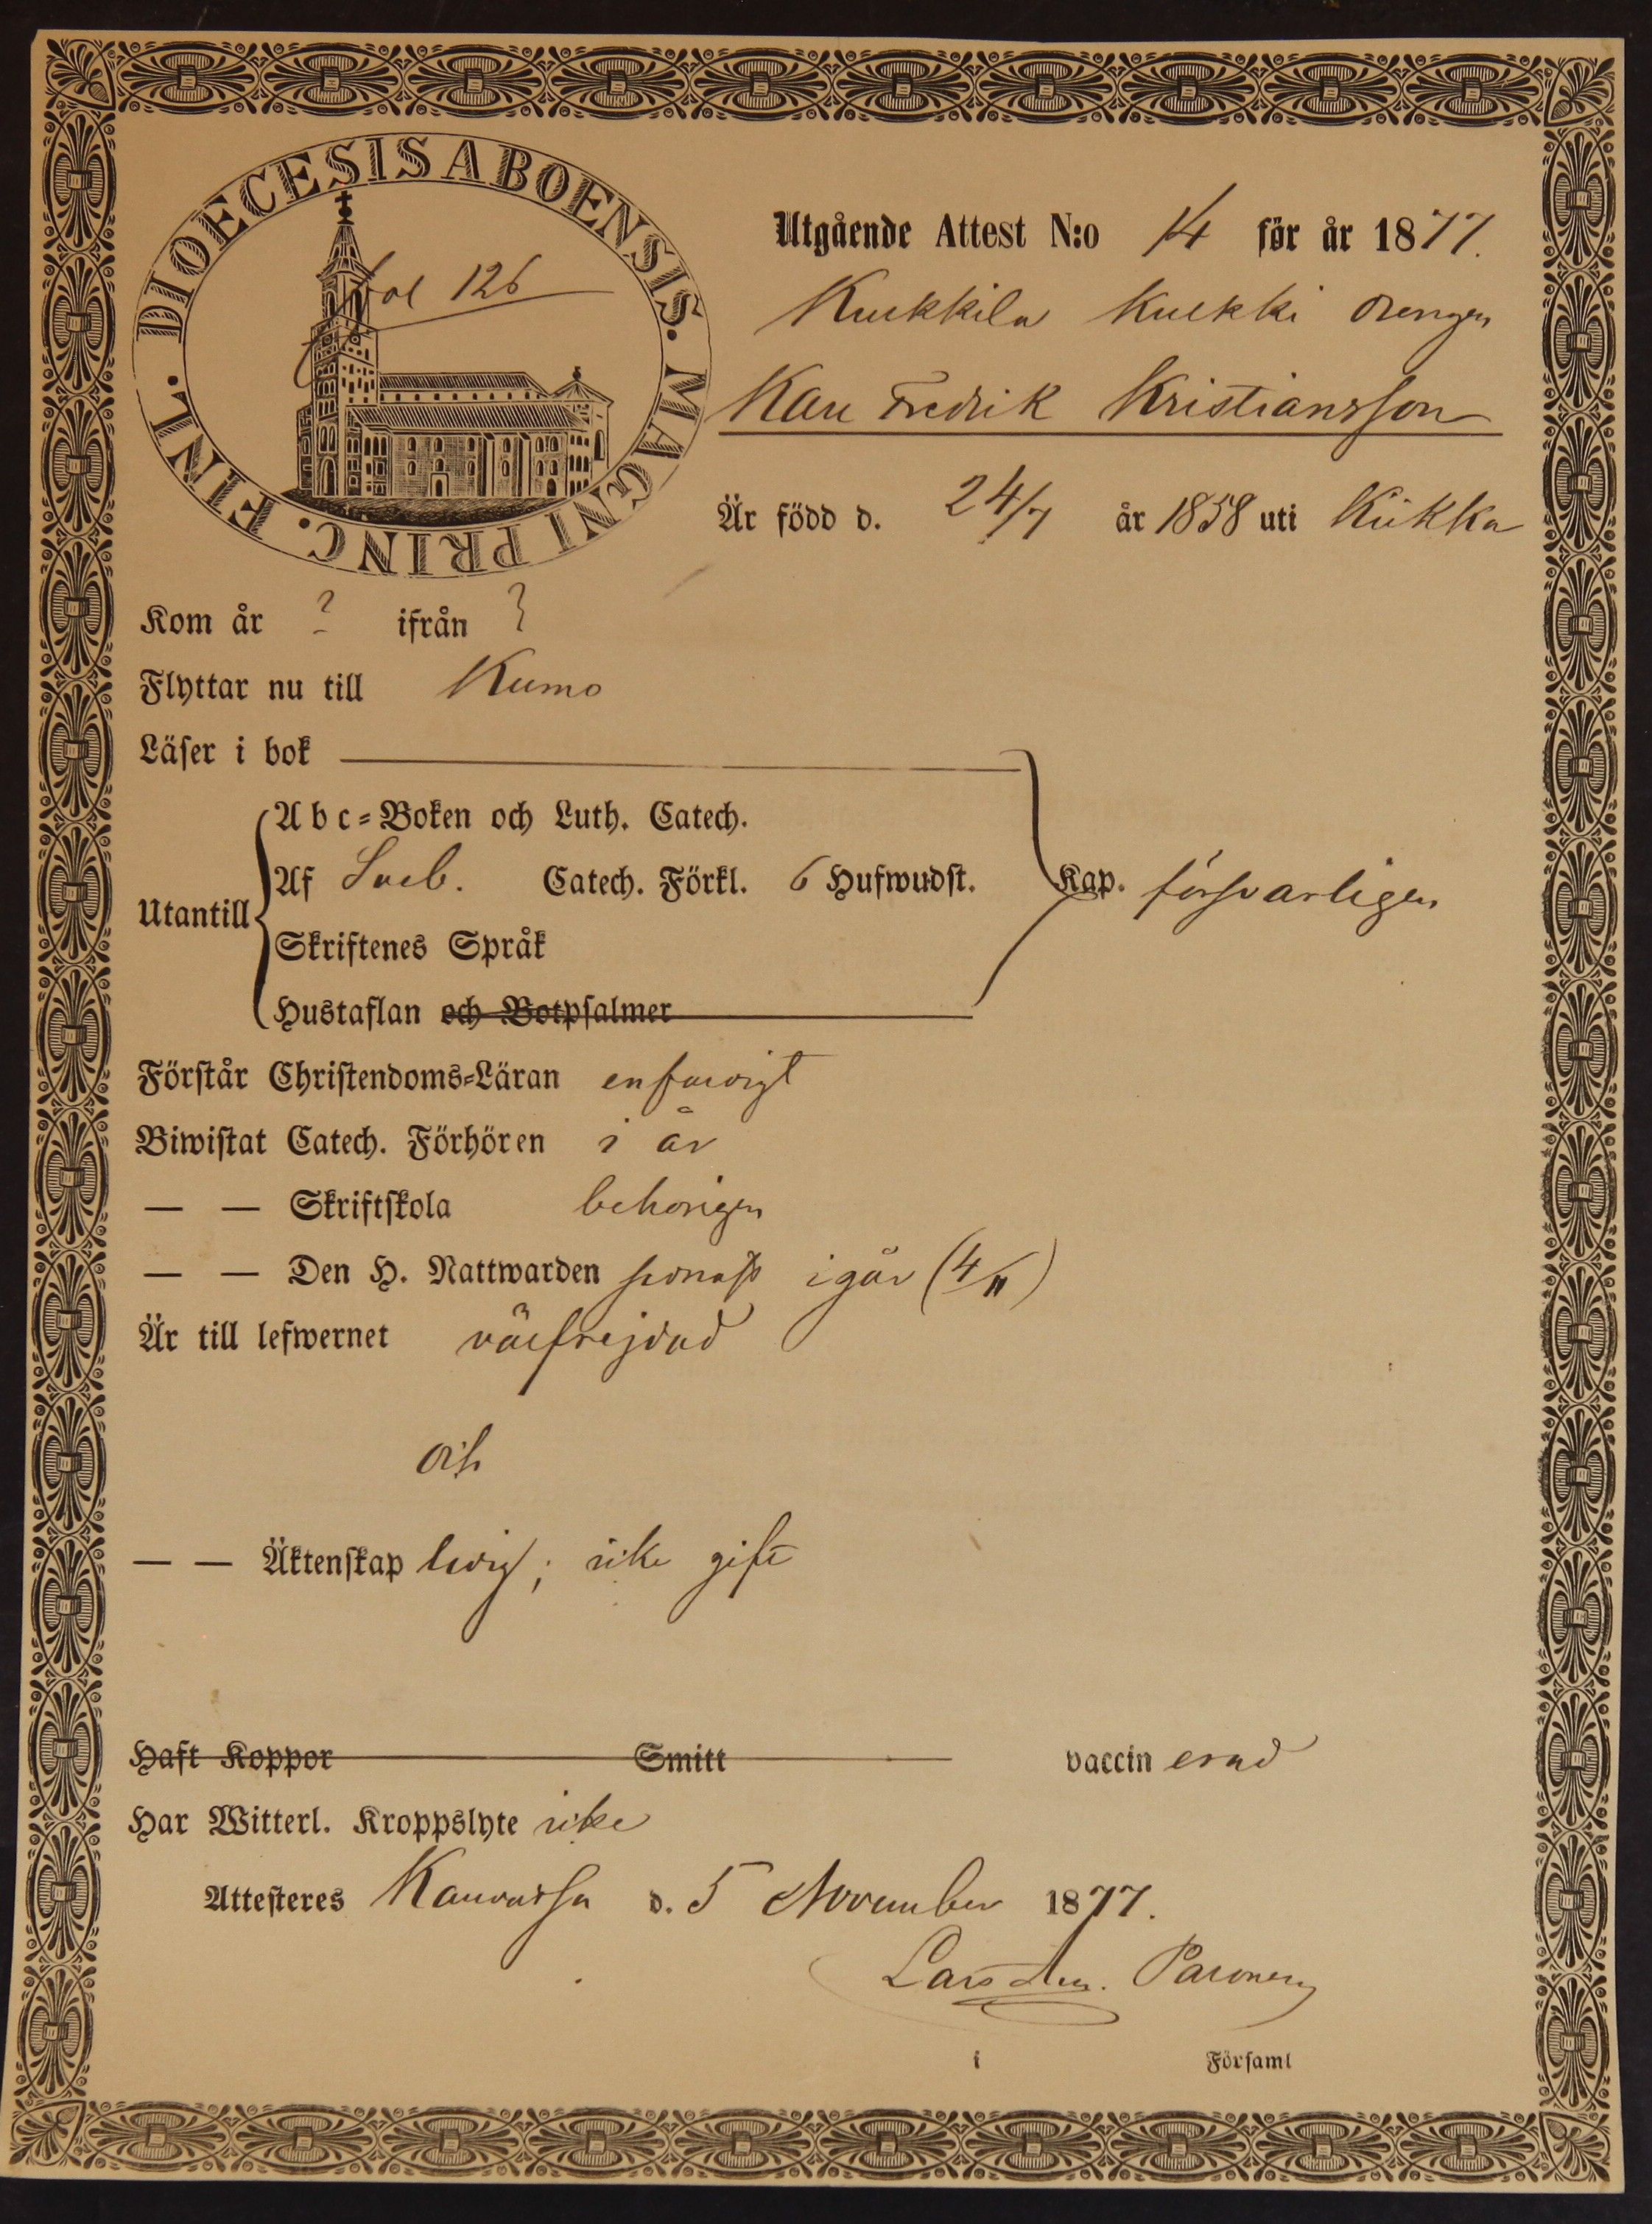 DIOECESIS ABOENSIS. MAGNI PRINC. FINL.
fol 126
Utgående Attest N:o 14 för år 1877.
Kukkila Kukki drengen
Karl Fredrik Kristiansson
Är född d. 24/7 år 1858 uti Kiikka
Kom år ? ifrån ?
Flyttar nu till Kumo
Läser i bok
Abc-Boken och Luth. Catech.
Utantill Af Sveb. Catech. Förkl. 6 Hufwudst. Kap. försvarligen
Skriftenes Språk
Hustaflan och Botpsalmer
Förstår Christendoms-Läran enfaldigt
Biwistat Catech. Förhören i år
— — Skriftskola behörigen
— — Den H. Nattwarden senast igår (4/11)
Är till lefwernet välfrejdad
och
— — Äktenskap ledig; icke gift
Haft Koppor Smitt vaccinerad
Har Witterl. Kroppslyte icke
Attesteres Kauvatsa d. 5 November 1877.
Lars
i Församl